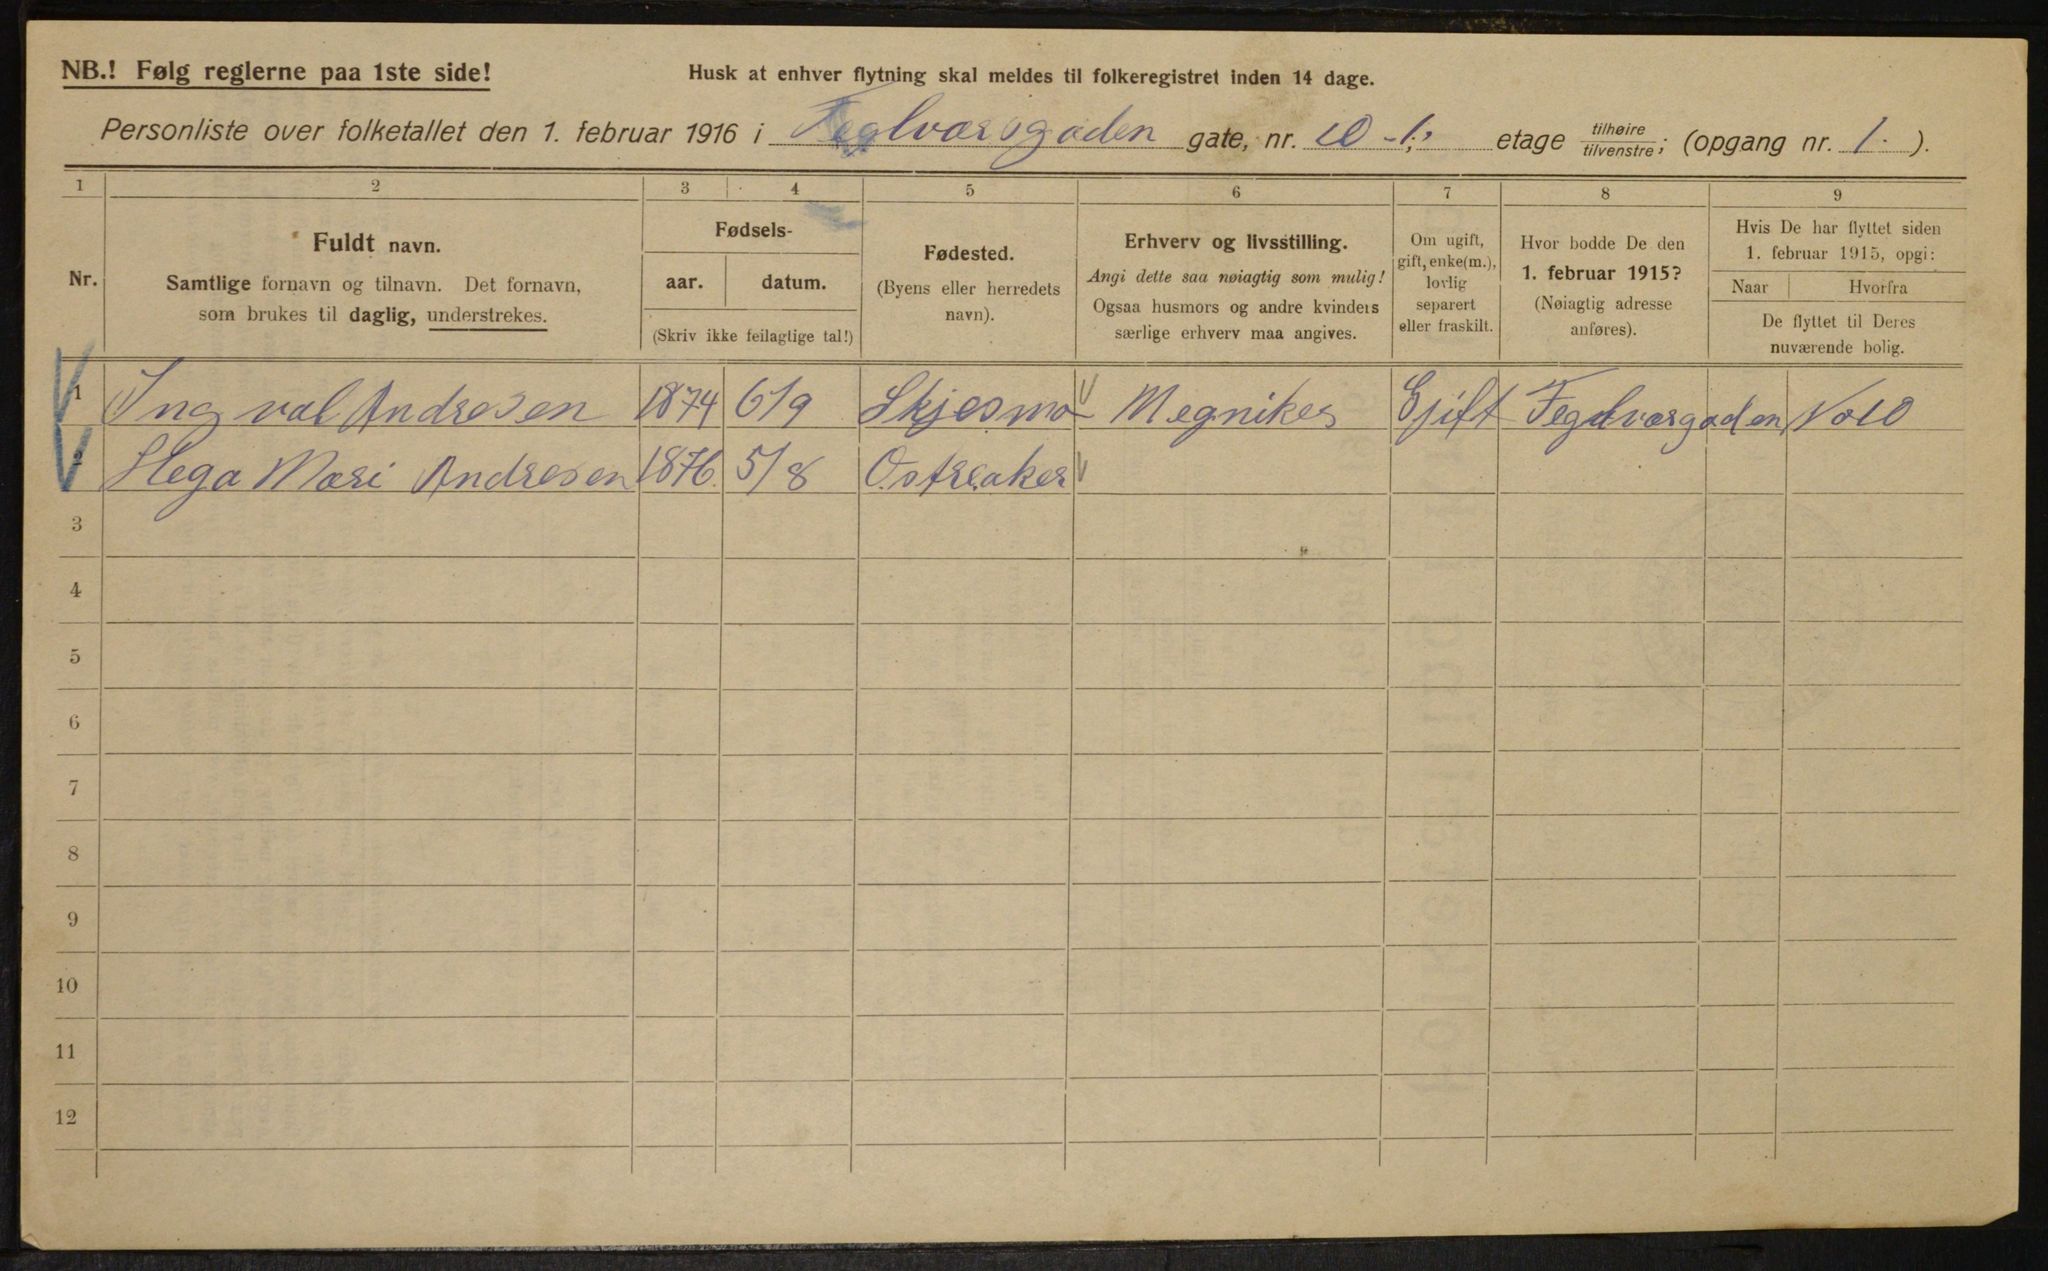 NB.! Følg reglerne paa 1ste side!
Husk at enhver flytning skal meldes til folkeregistret inden 14 dage.
Personliste over folketallet den 1. februar 1916 i Teglværsgaden gate, nr. 10 - 1; etage tilhøire / tilvenstre; (opgang nr. 1. ).
1 2 3 4 5 6 7 8 9
Nr.
Fuldt navn.
Samtlige fornavn og tilnavn. Det fornavn,
som brukes til daglig, understrekes.
Fødsels-
aar. datum.
(Skriv ikke feilagtige tal!)
Fødested.
(Byens eller herredets
navn).
Erhverv og livsstilling.
Angi dette saa nøiagtig som mulig!
Ogsaa husmors og andre kvinders
særlige erhverv maa angives.
Om ugift,
gift, enke(m.),
lovlig
separert
eller fraskilt.
Hvor bodde De den
1. februar 1915?
(Nøiagtig adresse
anføres).
Hvis De har flyttet siden
1. februar 1915, opgi:
Naar Hvorfra
De flyttet til Deres
nuværende bolig.
1 Ingval Andresen 1874 6/9 Skjesmo Megnikes Gjift Tegelværgaden No 10
2 Hega Mari Andresen 1876 5/8 Ostreaker
3
4
5
6
7
8
9
10
11
12